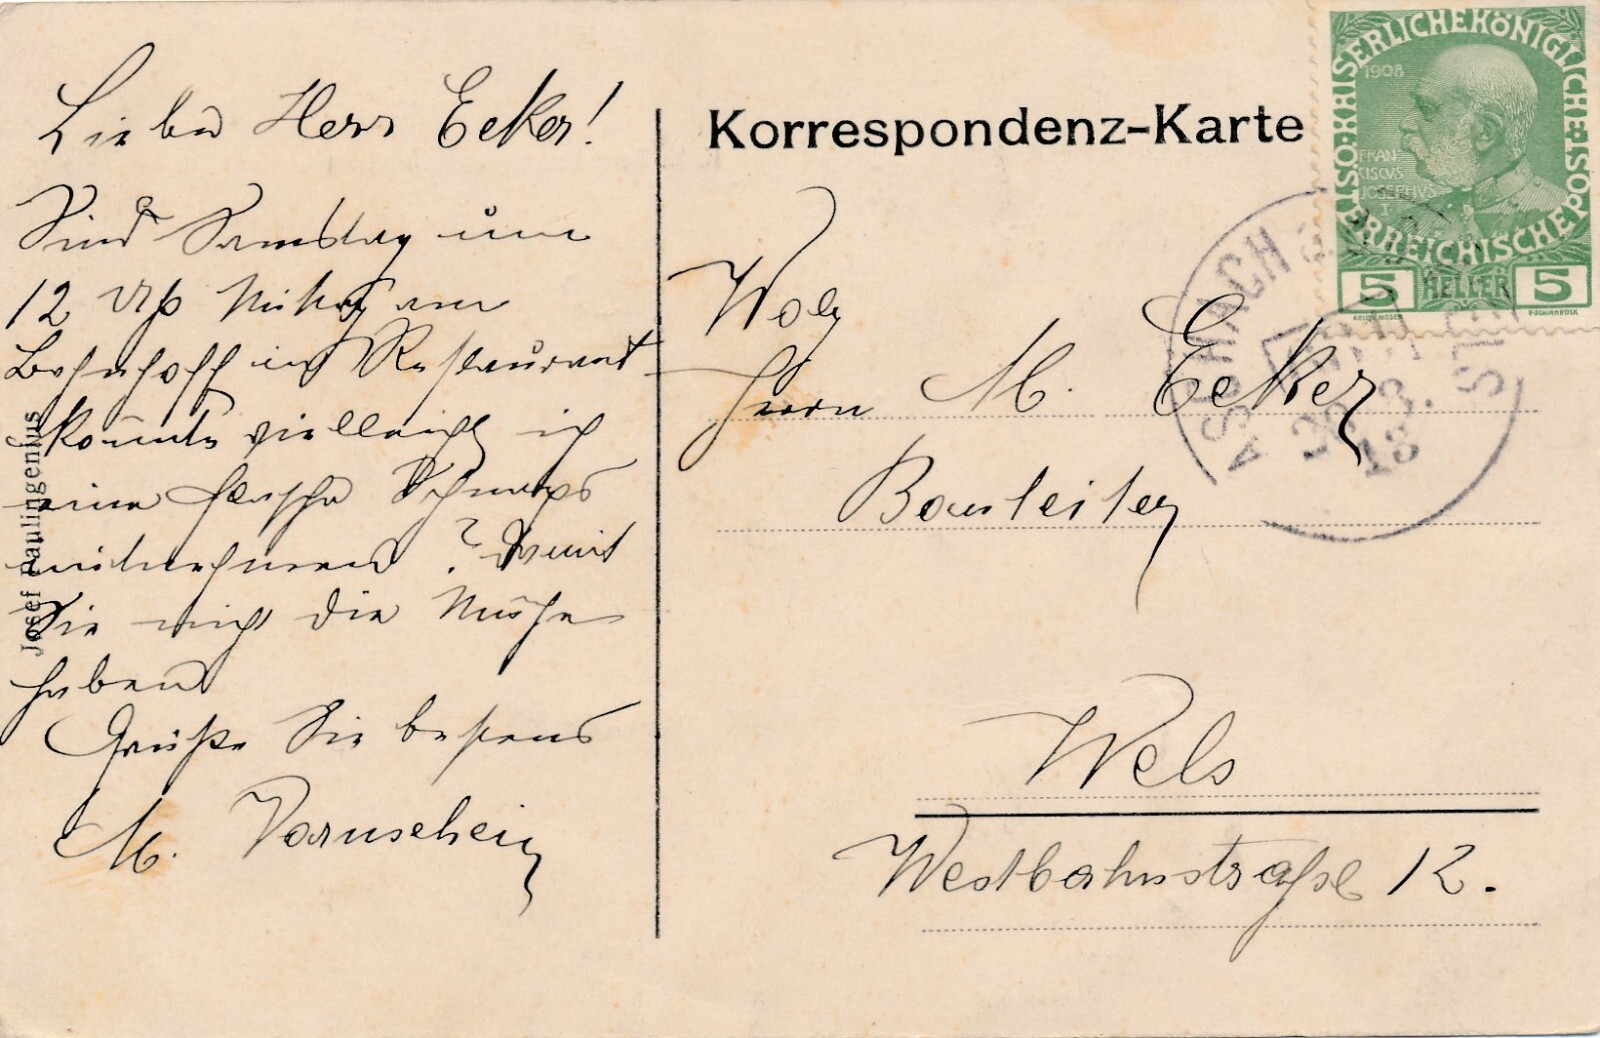 Lieber Herr Ecker!
Sind Samstag um
12 Uhr Mittag am
Bahnhoff im Restaurant
könnte vielleicht ich
eine Flasche Schnaps
mitnehmen? Damit
Sie nicht die Mühe
haben
Grüße Sie bestens
M.
Josef Paulingenius
Korrespondenz-Karte
KAISERLICHEKÖNIGLICHE
ÖSTERREICHISCHE POST
1908
FRAN
CISCVS
JOSEPHVS
I
5 HELLER 5
ASCHACH
Herrn M. Ecker
Bauleiter
Wels
Westbahnstraße 12.